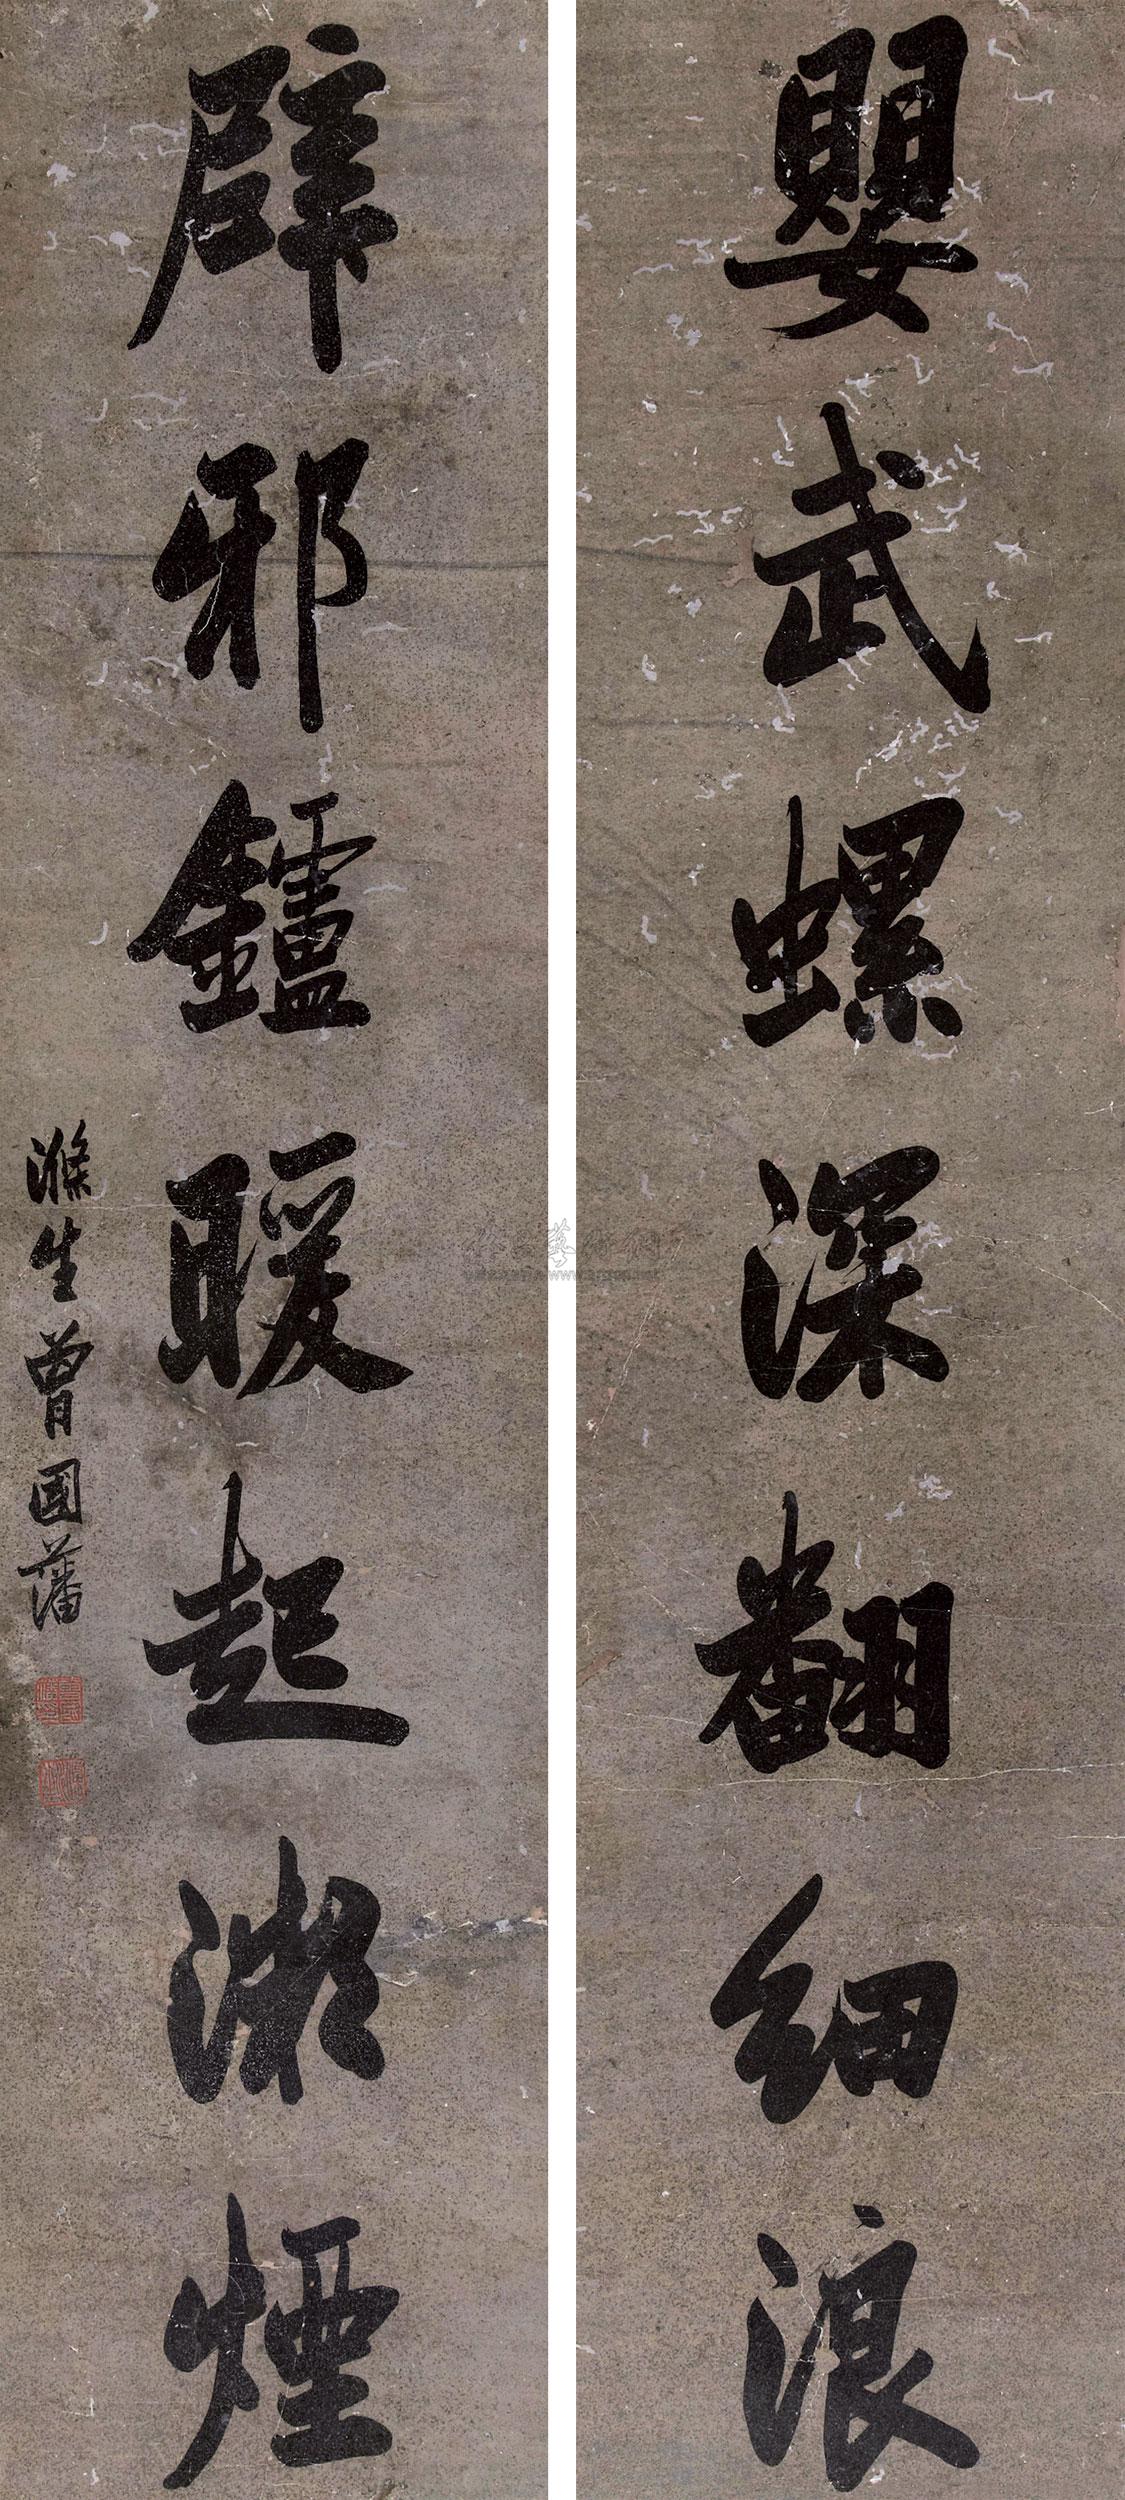 嬰武螺深翻細浪
辟邪鑪暖起㵄煙
滌生曾國藩